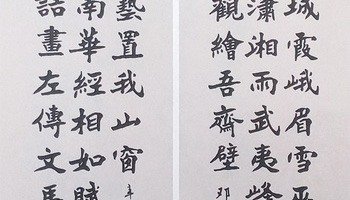 城霞峨眉雪平
瀟湘雨武夷峰
觀繪吾齋壁
鄧
藝置我山窗
南華經相如賦
話畫左傳文馬